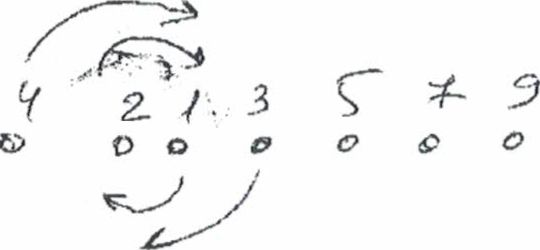 4 2 1 3 5 7 9